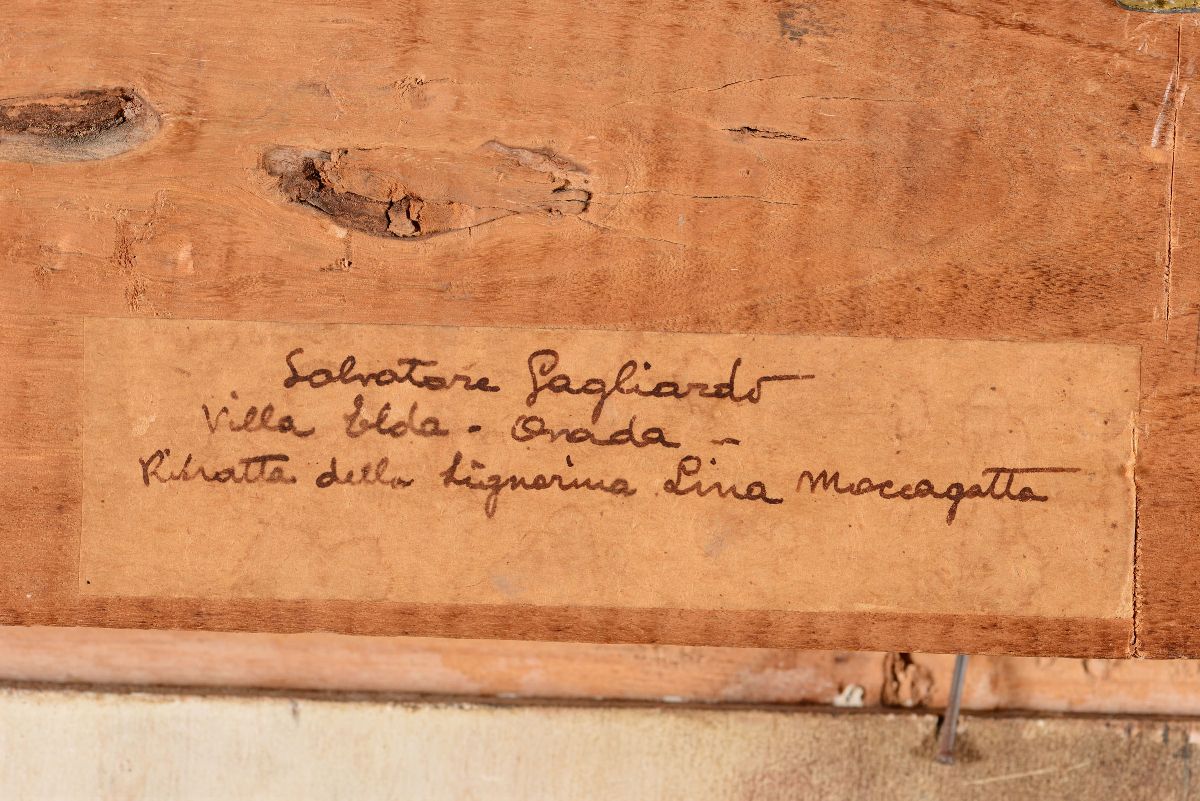 Salvatore Gagliardo
Villa Elda - Ovada -
Ritratto della Signorina Lina Moccagatta